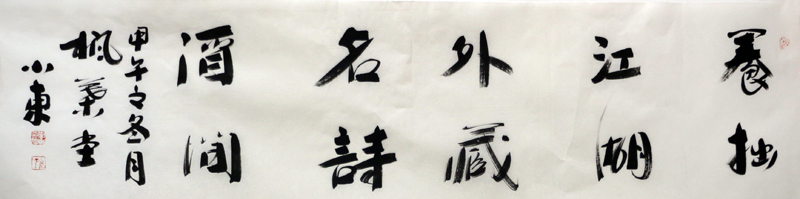 養拙
江湖
外藏
名詩
酒間
甲午之冬月
楓葉堂
小東